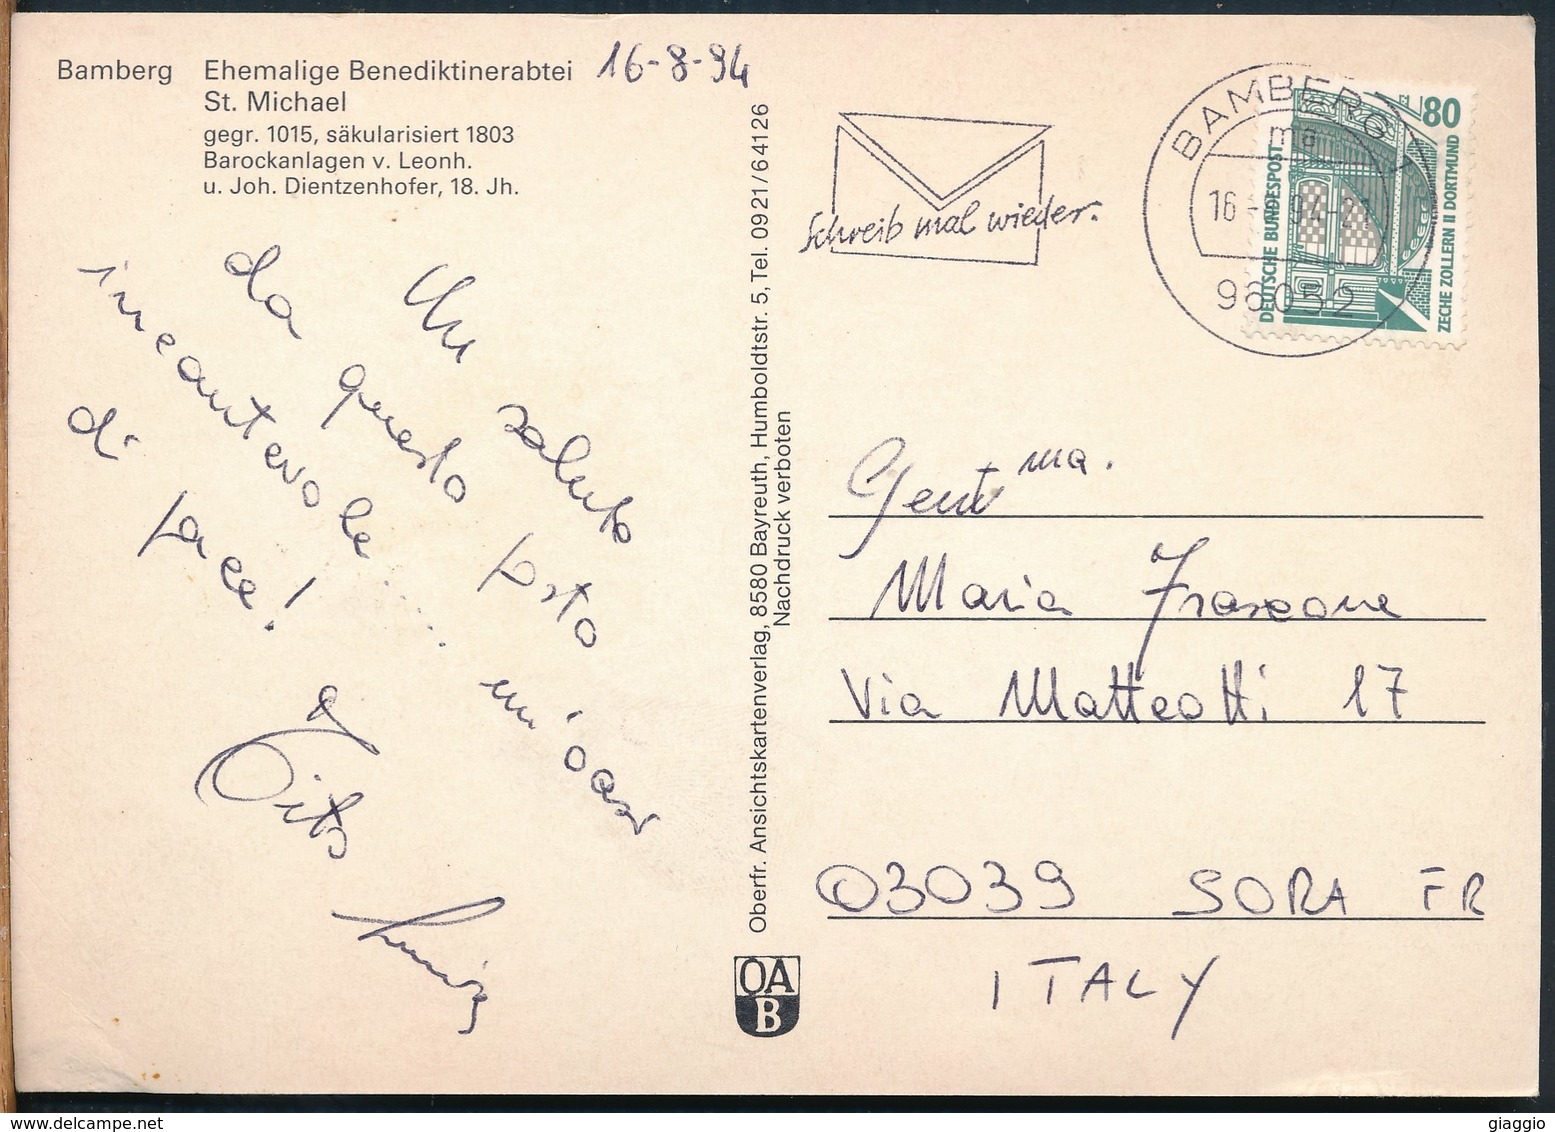 Bamberg Ehemalige Benediktinerabtei
St. Michael
gegr. 1015, säkularisiert 1803
Barockanlagen v. Leonh.
u. Joh. Dientzenhofer, 18. Jh.
16-8-94
Un saluto
da questo posto
incantevole... un'oasi
di pace!
Oberfr. Ansichtskartenverlag, 8580 Bayreuth, Humboldtstr. 5, Tel. 0921/64126
Nachdruck verboten
OA
B
Schreib mal wieder.
BAMBERG 1
ma
16- 94-21
96052
80
DEUTSCHE BUNDESPOST
ZECHE ZOLLERN II DORTMUND
Gent ma.
Maria Frascone
Via Matteotti 17
03039 SORA FR
ITALY
delcampe.net
giaggio